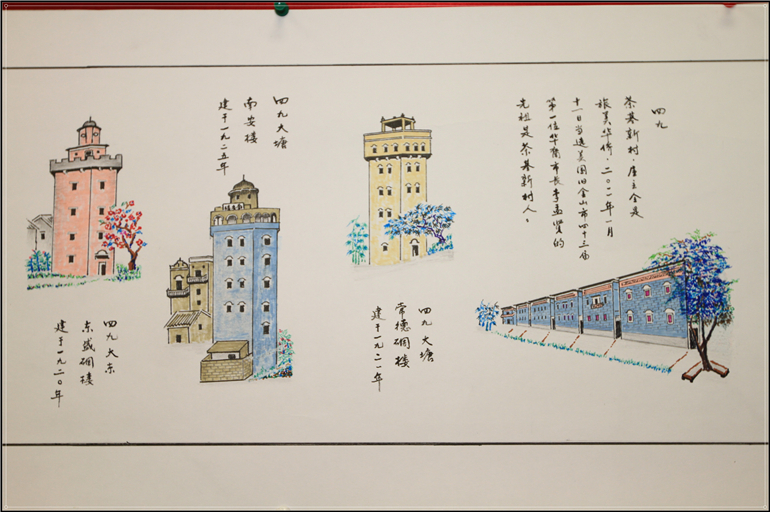 四九
茶基新村,屋主全是
旅美华侨.二〇一一年一月
十一日当选美国旧金山市四十三届
第一位华裔市长李孟贤的
先祖是茶基新村人。
四九大塘
常德碉楼
建于一九二一年
四九大塘
南安楼
建于一九二五年
四九大东
东盛碉楼
建于一九二〇年